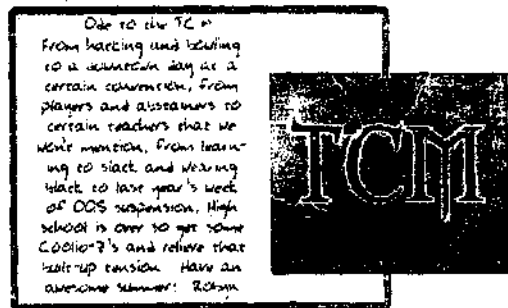 Ode to the TCM
From hacking and bowling
to a downtown day at a
certain convention, from
players and abstainers to
certain teachers that we
won't mention, from learn-
ing to slack and wearing
black to last year's week
of OSS suspension, High
school is over so get some
Coolio-7's and relieve that
built-up tension. Have an
awesome summer! Robyn
TCM